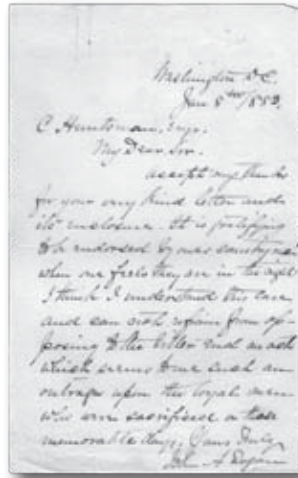 Washington D.C.
Jan 8th 1883.
C. Huntsman, Esq.
My Dear Sir.
accept my thanks
for your very kind letter and
its enclosure. It is gratifying
to be endorsed by ones countrymen
when one feels they are in the right
I think I understand this case
and can not refrain from op-
posing to the bitter end an act
which seems to me such an
outrage upon the loyal men
who were sacrificed in those
memorable days. Yours Truly
John A Logan